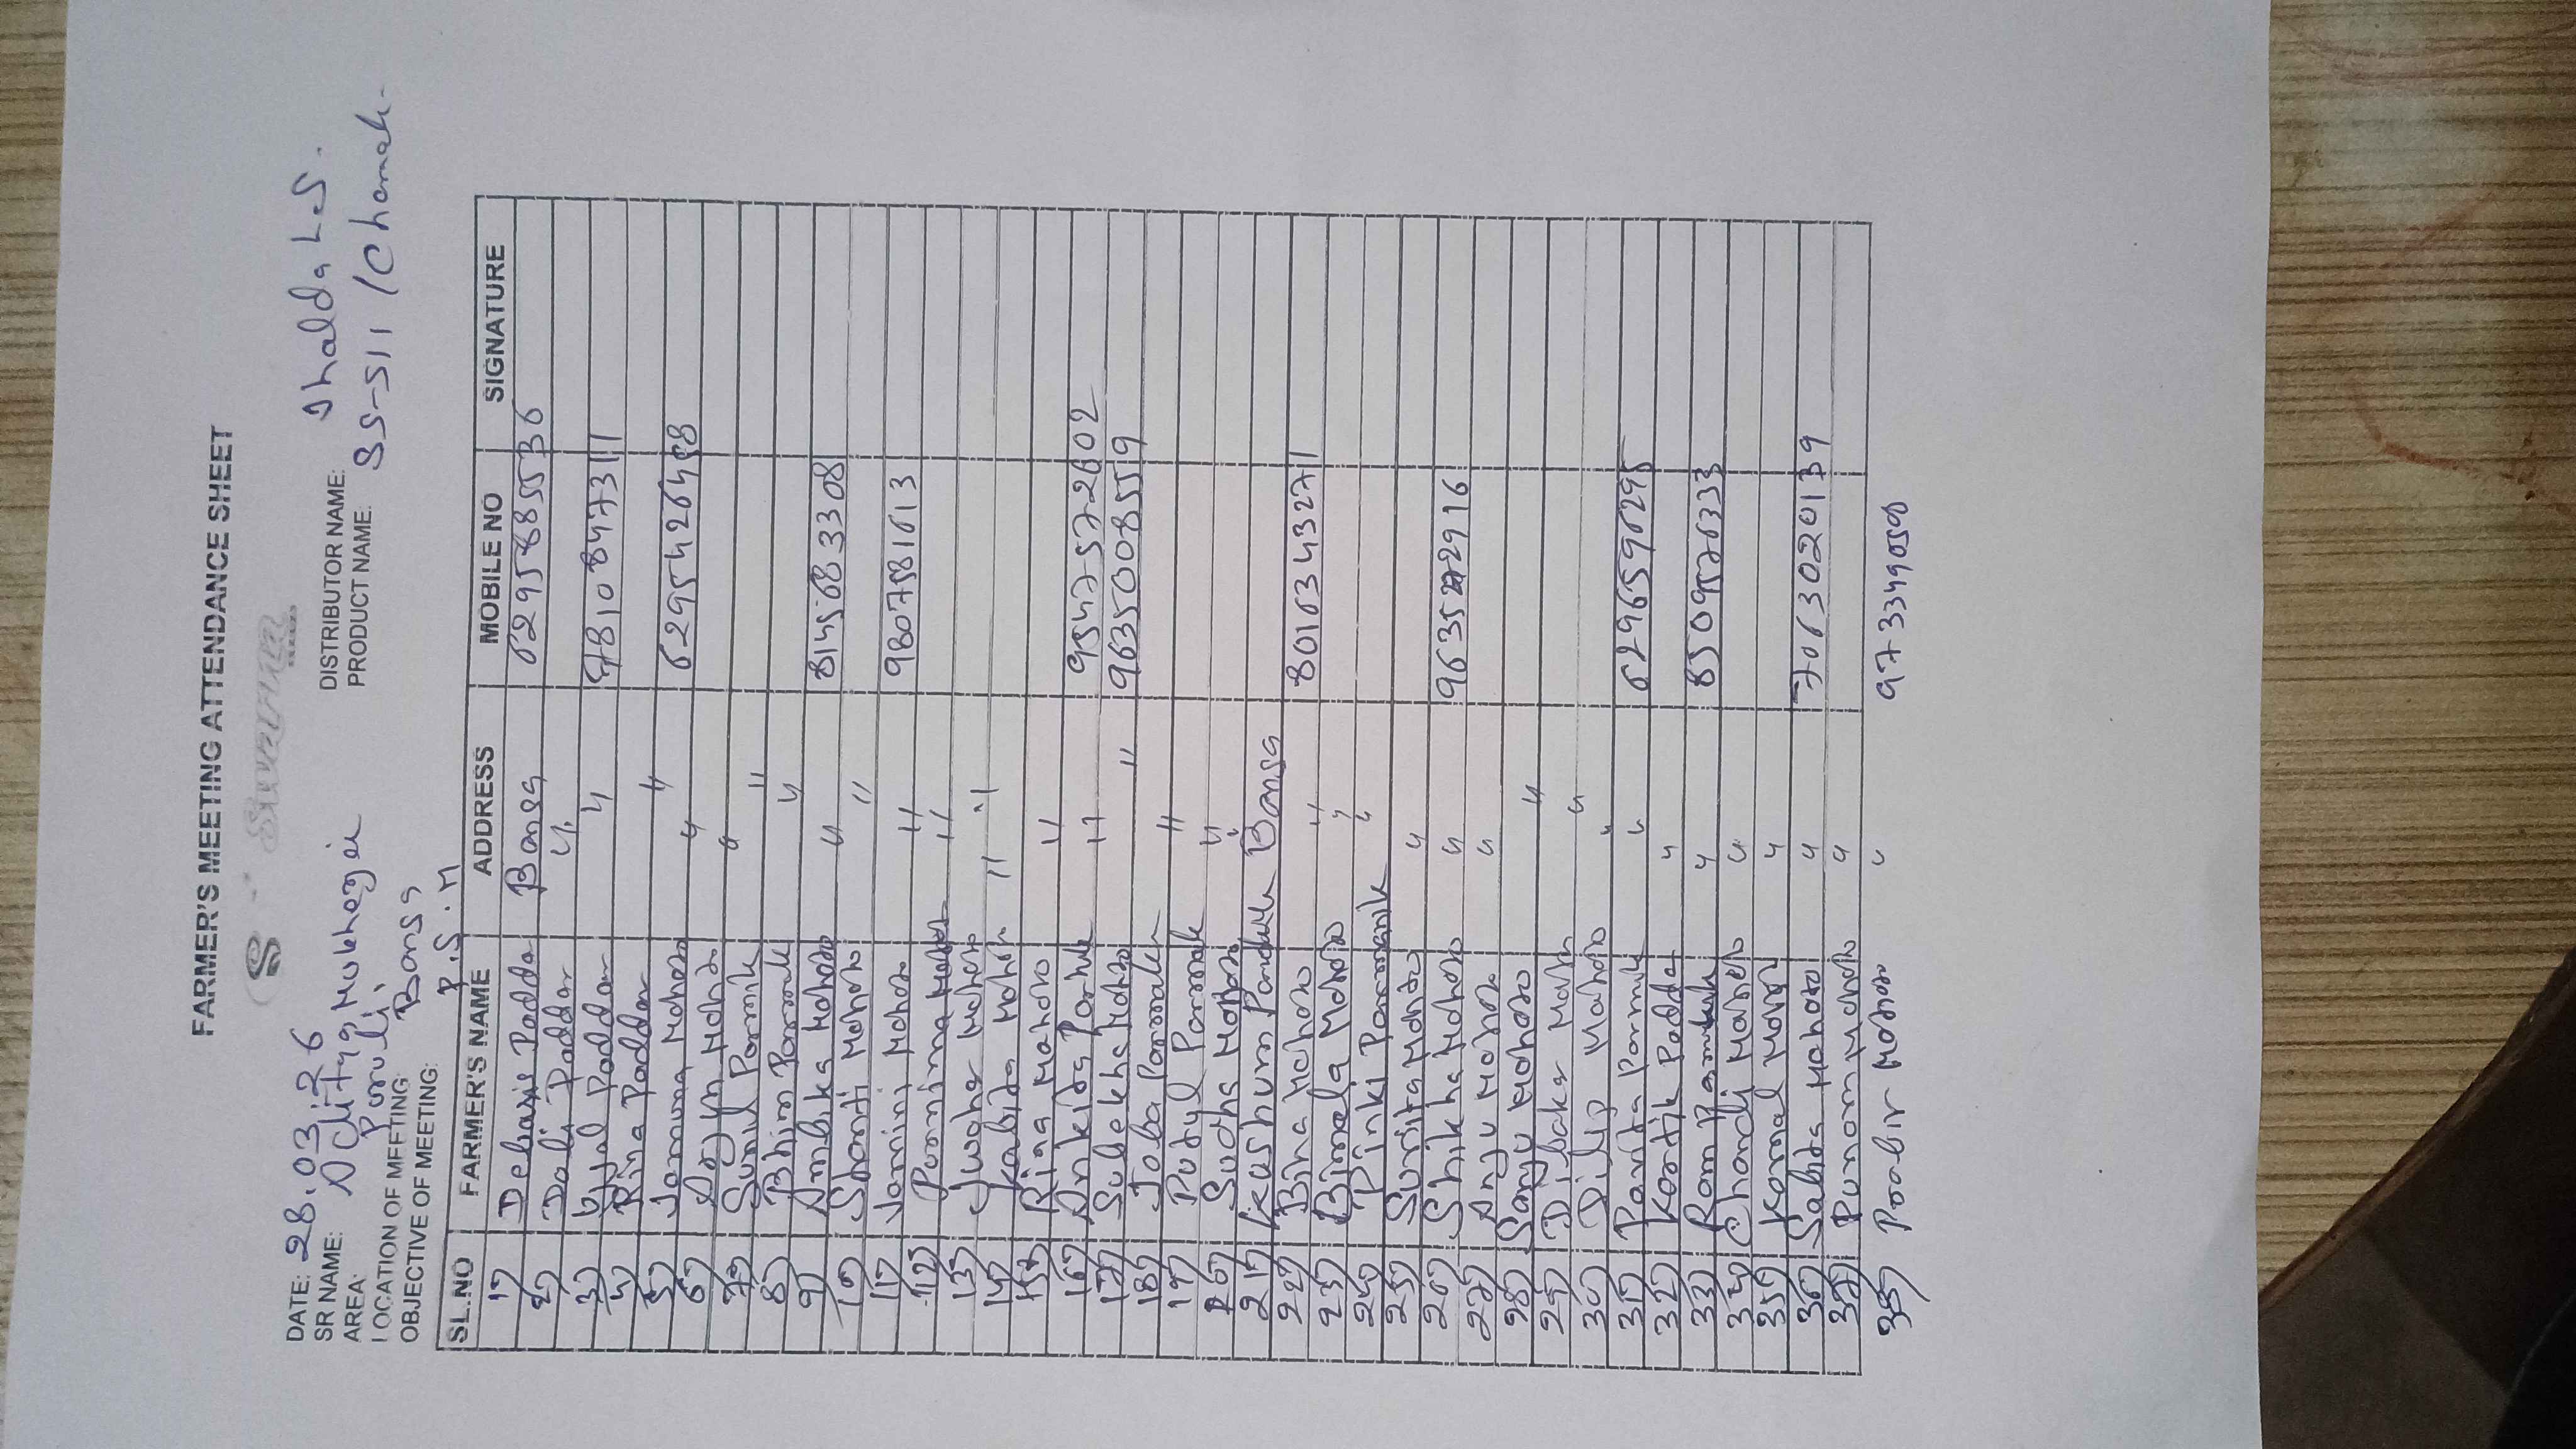 FARMER'S MEETING ATTENDANCE SHEET
DATE: 28.03.26
SR NAME: Aditya Mukherjei DISTRIBUTOR NAME: Jhalda L.S.
AREA: Puruli PRODUCT NAME: SS-511 (Chamak
LOCATION OF MEETING: Bansa
OBJECTIVE OF MEETING: P.S.M
SL.NO FARMER'S NAME ADDRESS MOBILE NO SIGNATURE
1) Debasis Podda Bansa 6295885536
2) Doli Poddar "
3) Ujjal Poddar " 7810847311
4) Rina Poddar "
5) Jamuna Mahato " 6295426488
6) Arjun Mahato "
7) Sunil Parmik "
8) Bhim Parmik "
9) Ambika Mahato " 8145683308
10) Shanti Mahato "
11) Jamini Mahato " 9807581613
12) Purnima Mahato "
13) Juoha Mahato "
14) Kabita Mahato "
15) Rina Mahato "
16) Ankita " 9547572602
17) Sulekha Mahato " 9635008559
18) Joba Parmanik "
19) Putul Parmanik "
20) Sudha Mahato "
21) Kushum Bansa
22) Bina Mahato " 8016343271
23) Bimala Mahato "
24) Pinki Parmanik "
25) Sunita Mahato "
26) Shikha Mahato " 9635272916
27) Anju Mahato "
28) Sanju Mahato "
29) Dibakar Mahato "
30) Dilip Mahato "
31) Parmik " 6296596295
32) Kartik Podda "
33) Ram " 8509576333
34) Chandi Mahato "
35) Komal Mahato "
36) Sabita Mahato " 7063020139
37) Punam Mahato "
38) Prabir Mahato " 9733490598